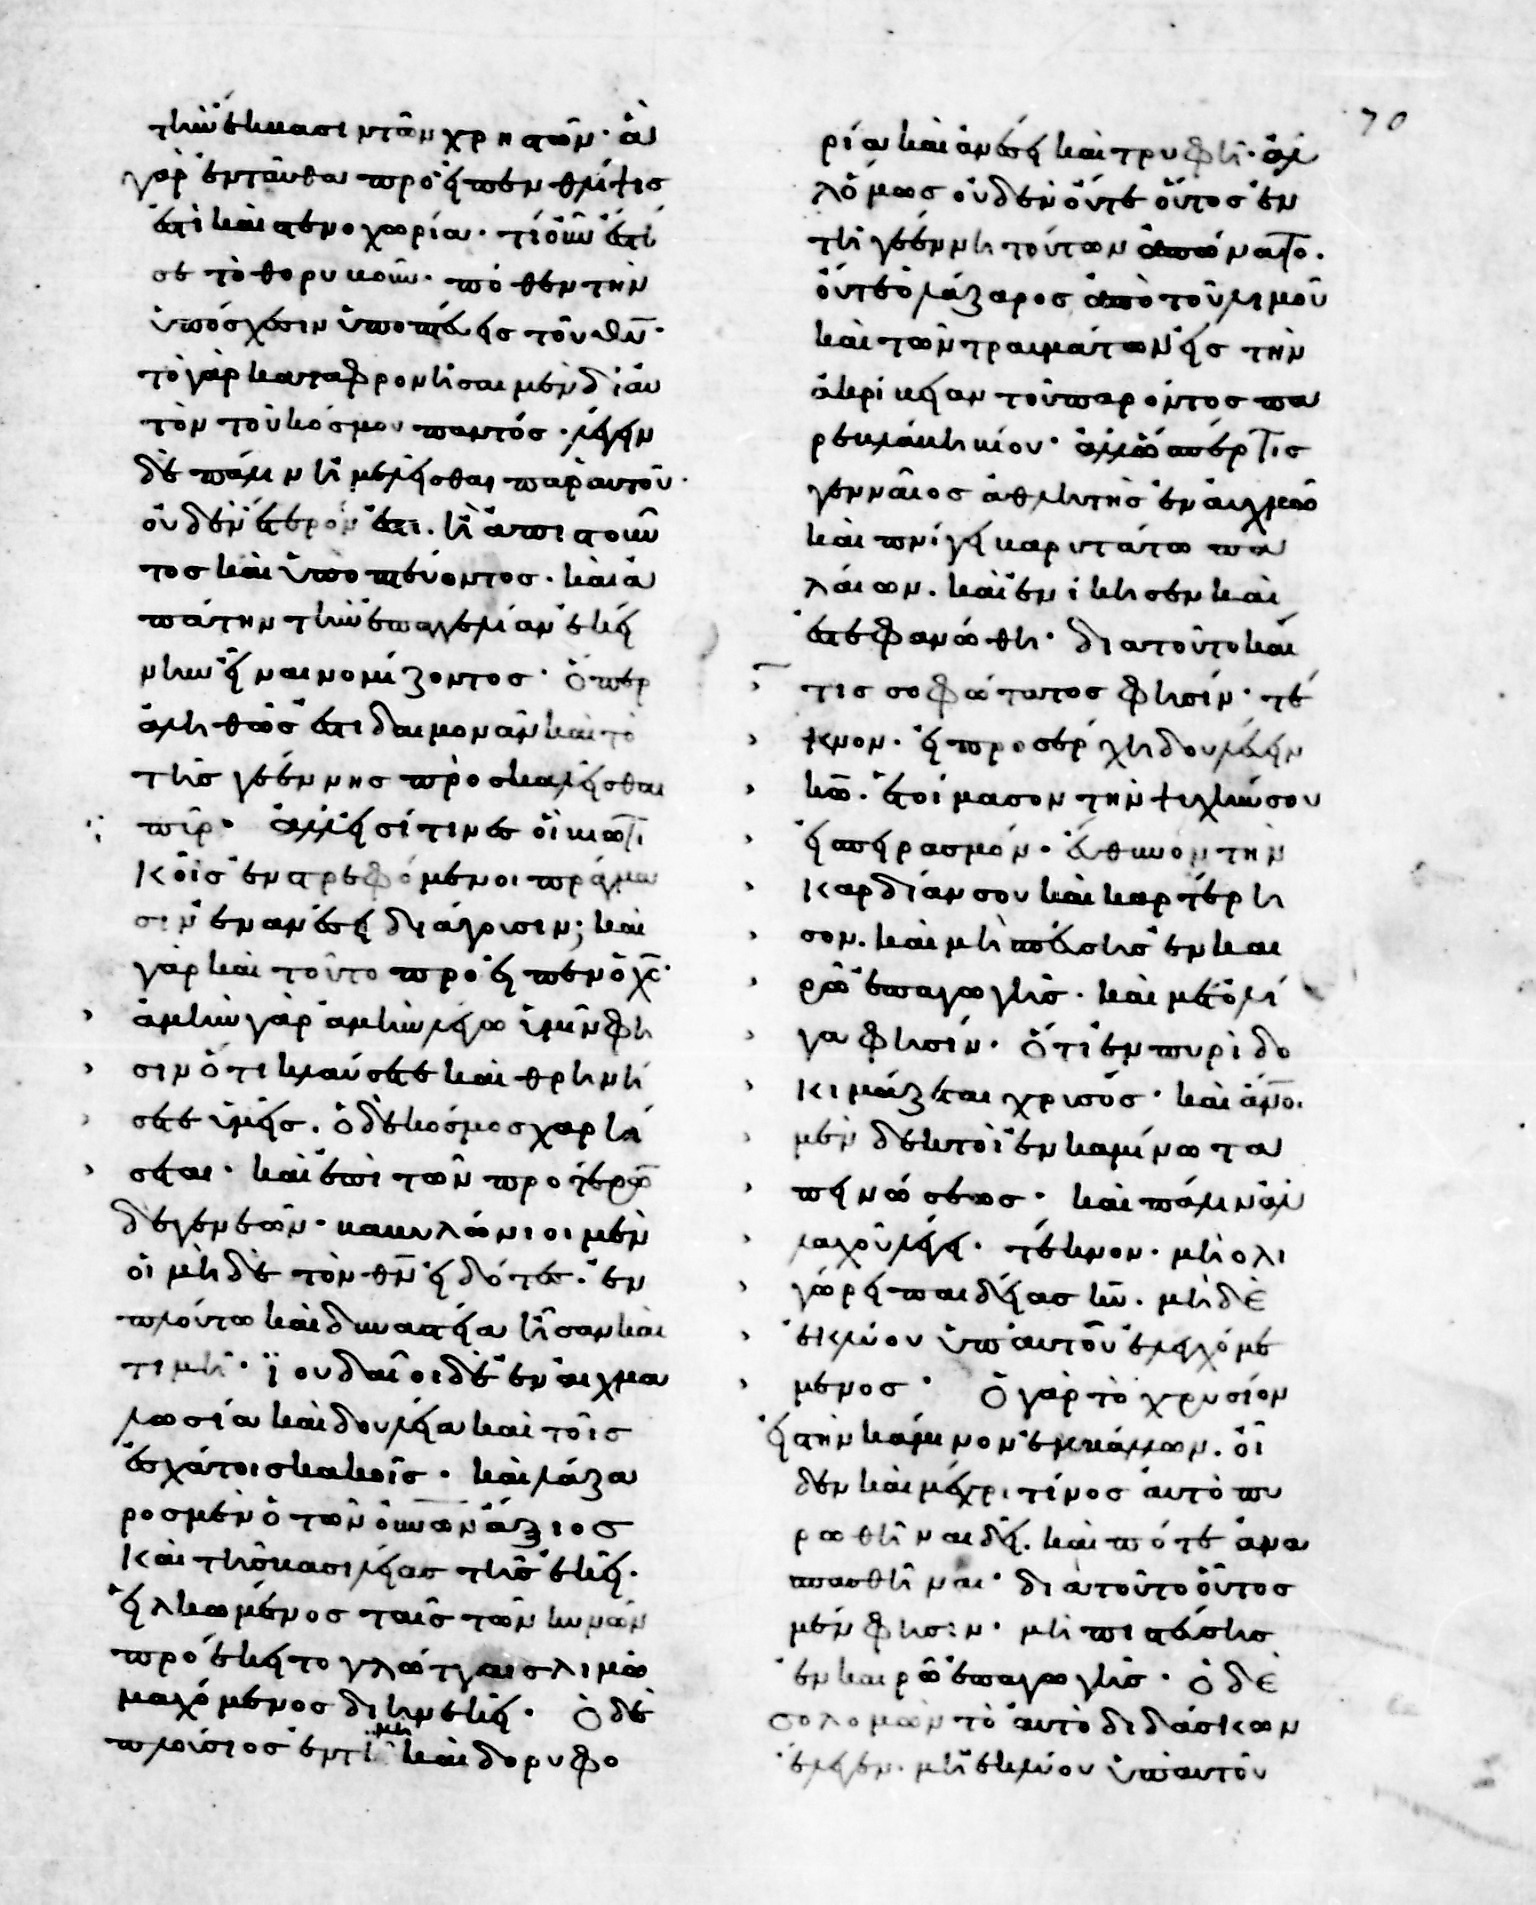 70
τὴν ἔκβασιν τῶν χρηστῶν· ἂν
γὰρ ἐνταῦθα προεῖπεν θλίψις
ἐστὶ καὶ στενοχωρία· τί οὖν ἐστί
σε τὸ θορυβοῦν· πόθεν τὴν
ὑπόσχεσιν ὑποπτεύεις τοῦ θυ·
τὸ γὰρ καταφρονῆσαι μὲν δι' αυ
τὸν τοῦ κόσμου παντός· λέγειν
δὲ πάλιν ἠμελεῖσθαι παρ' αυτοῦ·
οὐδὲν ἕτερόν ἐστι. ἢ ἀπιστοῦν
τος καὶ ὑποπτεύοντος· καὶ ἀ
πάτην τὴν ἐπαγγελίαν ἐκεί
νην εἶναι νομίζοντος· ὅπερ
ἀληθῶς ἐστι δαιμονᾶν καὶ τὸ
τῆς γεέννης προσκαλεῖσθαι
πῦρ· ἀλλ' εἰσί τινες οἳ βιωτι
κοῖς ἐνστρεφόμενοι πράγμα
σιν ἐν ἀνέσει διάγουσιν; καὶ
γὰρ καὶ τοῦτο προεῖπεν ὁ χς·
ἀμὴν γὰρ ἀμὴν λέγω ὑμῖν φη
σιν ὅτι κλαύσετε καὶ θρηνή
σετε ὑμεῖς. ὁ δὲ κόσμος χαρή
σεται· καὶ ἐπὶ τῶν προτέρων
δὲ γενεῶν· βαβυλώνιοι μὲν
οἱ μηδὲ τὸν θν εἰδότες· ἐν
πλούτω καὶ δυναστεία ἦσαν καὶ
τιμῆ· ἰουδαῖοι δὲ ἐν αἰχμα
λωσία καὶ δουλεία καὶ τοῖς
ἐσχάτοις κακοῖς· καὶ λάζα
ρος μὲν ὁ τῶν ουνων ἄξιος
καὶ τῆς βασιλείας τῆς ἐκεῖ·
εἱλκωμένος ταῖς τῶν κυνῶν
προέκειτο γλώτταις λιμῶ
μαχόμενος διηνεκεῖ· ὁ δὲ
πλούσιος ἐν τιμῆ καὶ δορυφο
ρία καὶ ἀνέσει καὶ τρυφῆ· ἀλ
λ' ὅμως οὐδὲν οὔτε οὗτος ἐν
τῆ γεέννη τούτων ἀπώνατο.
οὔτε ὁ λάζαρος ἀπὸ τοῦ λιμοῦ
καὶ τῶν τραυμάτων εἰς τὴν
ἀκρίβειαν τοῦ παρόντος πα
ρεβλάβη βίου· ἀλλ' ὥσπέρ τις
γενναῖος ἀθλητὴς ἐν αὐχμῶ
καὶ πνίγει βαρυτάτω πα
λαίων. καὶ ἐνίκησεν καὶ
ἐστεφανώθη· διατοῦτο καί
τις σοφώτατος φησίν· τέ
κνον· εἰ προσέρχη δουλεύειν
κω. ἑτοίμασον τὴν ψυχήν σου
εἰς πειρασμόν· εὔθυνον τὴν
καρδίαν σου καὶ καρτέρη
σον. καὶ μὴ σπεύσης ἐν και
ρῶ ἐπαγωγῆς· καὶ μετ' ὀλί
γα φησίν· ὅτι ἐν πυρὶ δο
κιμάζεται χρυσός· καὶ ἄνοι
μὲν δεκτοὶ ἐν καμίνω τα
πεινώσεως· καὶ πάλιν ἀλ
λαχοῦ λέγει· τέκνον· μὴ ολι
γώρει παιδείας κυ. μὴ δὲ
ἐκλύου ὑπ' αυτοῦ ἐλεγχόμε
μενος· ὁ γὰρ τὸ χρυσίον
εἰς τὴν κάμινον ἐμβάλλων. οἶ
δεν καὶ μέχρι τίνος αὐτὸ πυ
ρωθῆναι δεῖ. καὶ πότε ἀνα
σπασθῆναι· διατοῦτο οὗτος
μέν φησιν· μὴ πισπεύσης
ἐν καιρῶ ἐπαγωγῆς· ὁ δὲ
σολομῶν τὸ αὐτὸ διδάσκων
ἔλεγεν· μὴ ἐκλύου ὑπ' αυτοῦ